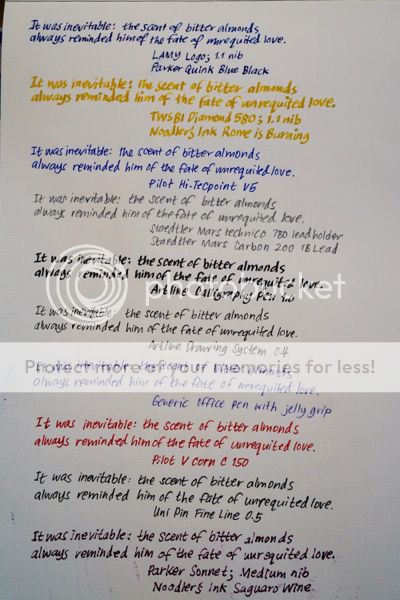 It was inevitable: the scent of bitter almonds
always reminded him of the fate of unrequited love.
LAMY Logo; 1.1 nib
Parker Quink Blue Black
It was inevitable: the scent of bitter almonds
always reminded him of the fate of unrequited love.
TWSBI Diamond 580; 1.1 nib
Noodler's Ink Rome is Burning
It was inevitable: the scent of bitter almonds
always reminded him of the fate of unrequited love.
Pilot Hi-Tecpoint V5
It was inevitable: the scent of bitter almonds
always reminded him of the fate of unrequited love.
Staedtler Mars technico 780 leadholder
Staedtler Mars Carbon 200 1B Lead
It was inevitable: the scent of bitter almonds
always reminded him of the fate of unrequited love.
Artline Calligraphy Pen
photobucket
It was inevitable: the scent of bitter almonds
always reminded him of the fate of unrequited love.
Artline Drawing System 0.4
Protect more of your memories for less!
It was inevitable: the scent of bitter almonds
always reminded him of the fate of unrequited love.
Generic office pen with jelly grip
It was inevitable: the scent of bitter almonds
always reminded him of the fate of unrequited love.
Pilot V Corn C 150
It was inevitable: the scent of bitter almonds
always reminded him of the fate of unrequited love.
Uni Pin Fine Line 0.5
It was inevitable: the scent of bitter almonds
always reminded him of the fate of unrequited love.
Parker Sonnet; Medium nib
Noodler's Ink Saguaro Wine